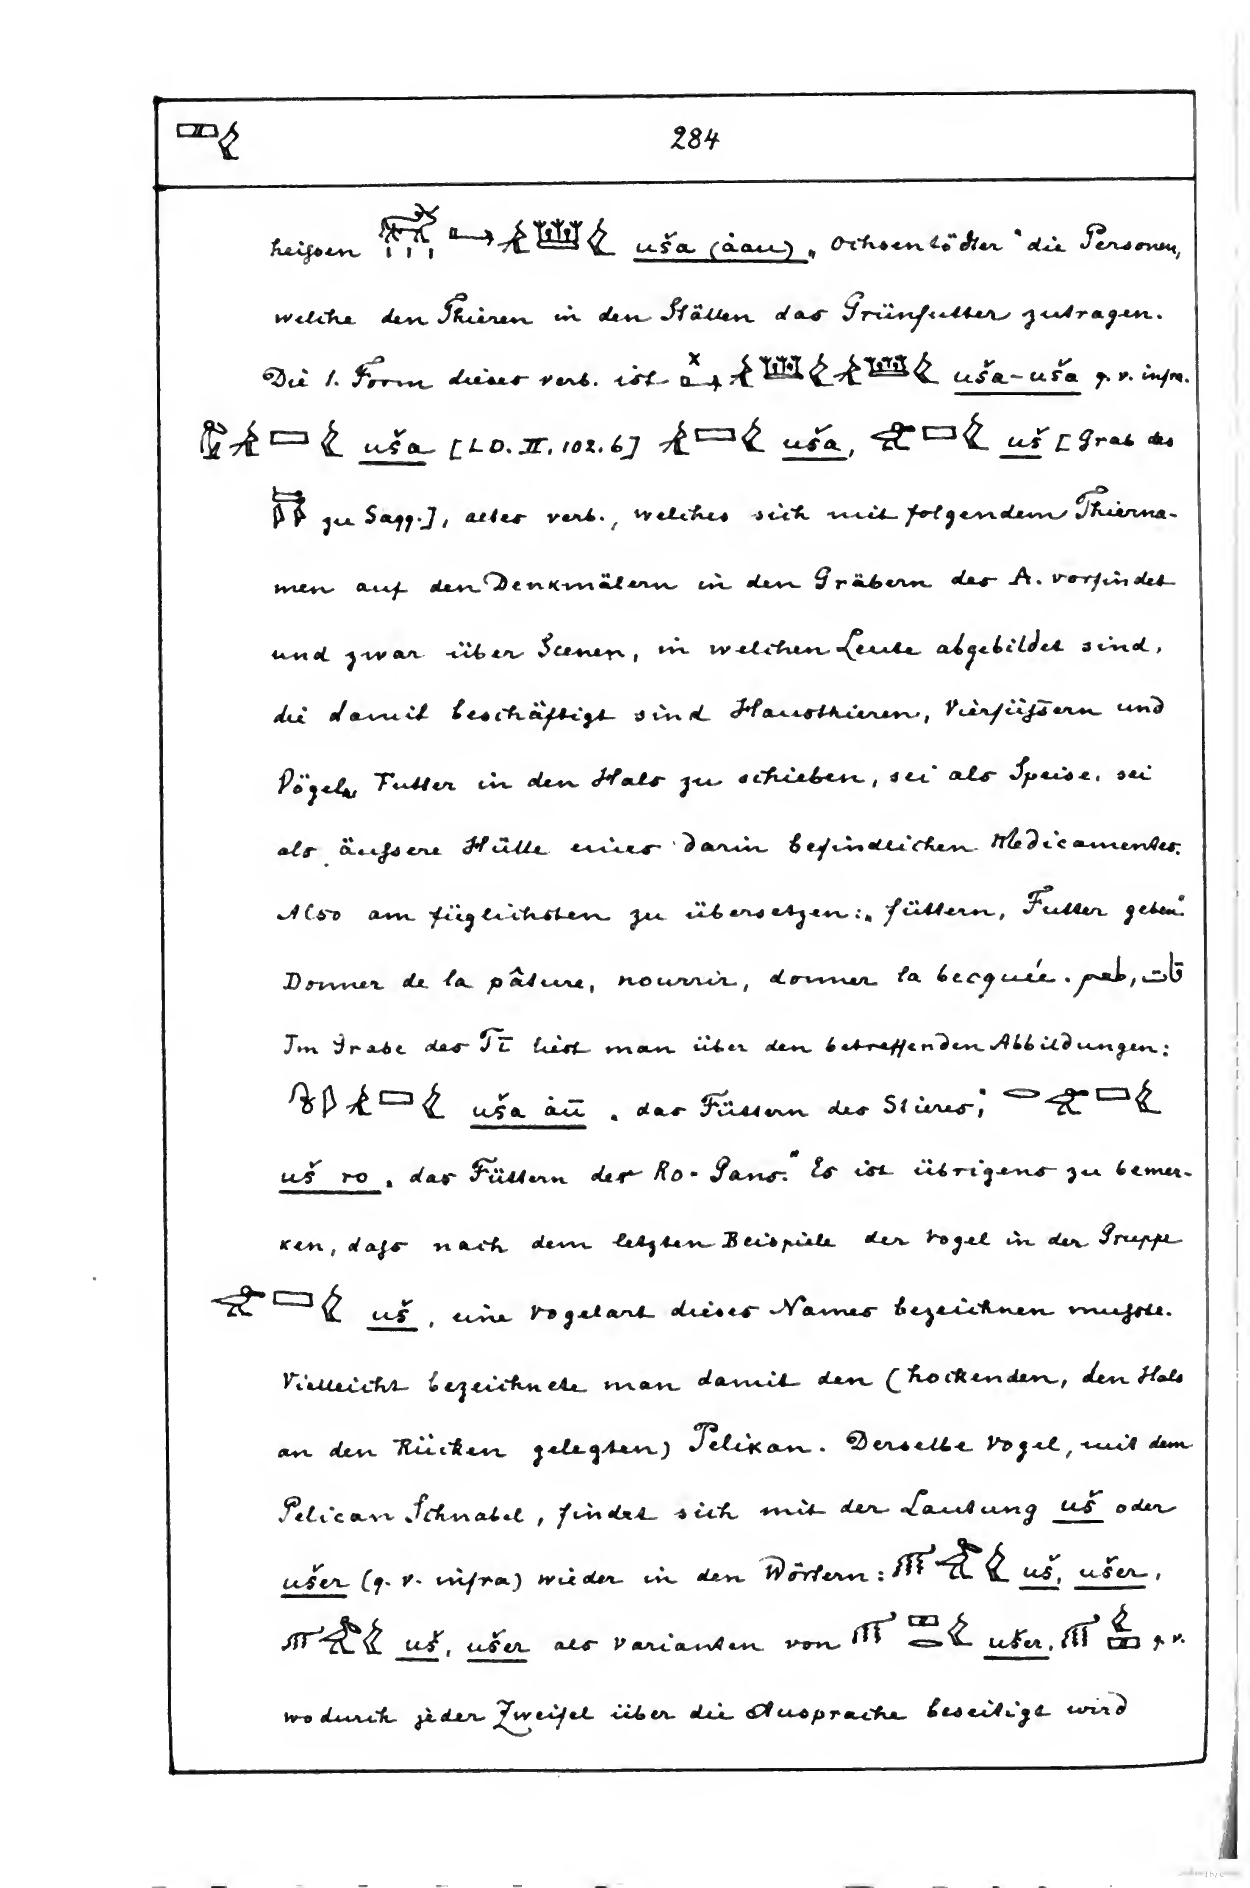 284
heifsen uša (ȧau) „Ochsentödter“ die Personen,
welche den Thieren in den Ställen das Grünfutter zutragen.
Die 1. Form dieses verb. ist uša-uša q. v. infra.
uša [LD. II, 102. 6] uša, uš [Grab des
zu Saqq.], altes verb., welches sich mit folgendem Thierna-
men auf den Denkmälern in den Gräbern des A. vorfindet
und zwar über Scenen, in welchen Leute abgebildet sind,
die damit beschäftigt sind Hausthieren, Vierfüfsern und
Vögeln Futter in den Hals zu schieben, sei als Speise, sei
als äufsere Hülle eines darin befindlichen Medicamentes.
Also am füglichsten zu übersetzen: „füttern, Futter geben“.
Donner de la pâture, nourrir, donner la becquée.
Im Grabe des Tī liest man über den betreffenden Abbildungen:
uša ȧū „das Füttern des Stieres“;
uš ro „das Füttern der Ro-Gans.“ Es ist übrigens zu bemer-
ken, dafs nach dem letzten Beispiele der Vogel in der Gruppe
uš, eine Vogelart dieses Names bezeichnen mufste.
Vielleicht bezeichnete man damit den (hockenden, den Hals
an den Rücken gelegten) Pelikan. Derselbe Vogel, mit dem
Pelican Schnabel, findet sich mit der Lautung uš oder
ušer (q. v. infra) wieder in den Wörtern: uš, ušer,
uš, ušer als Varianten von ušer, q. v.
wodurch jeder Zweifel über die Aussprache beseitigt wird